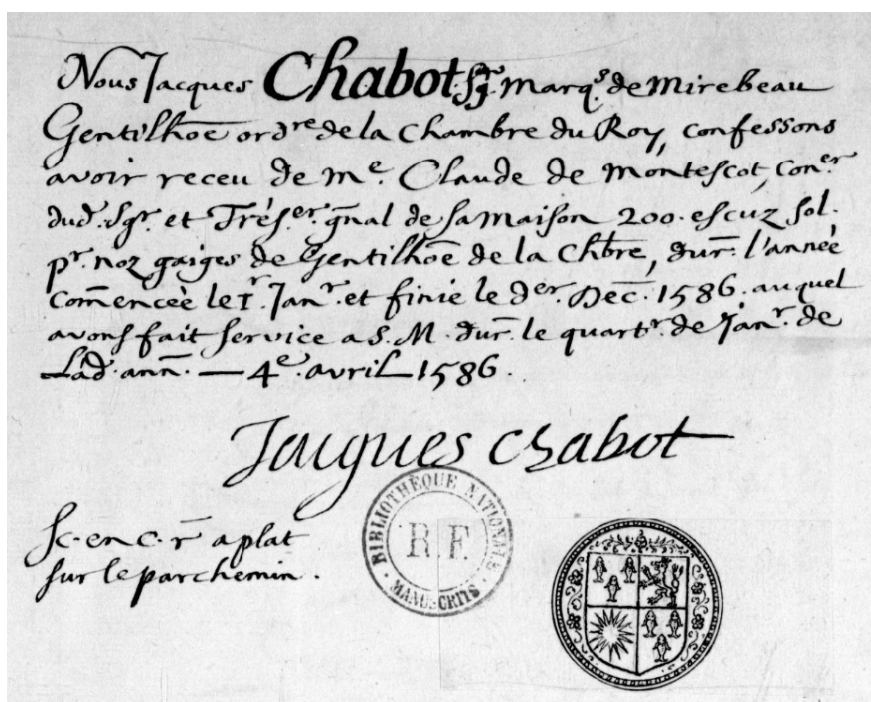 Nous Jacques Chabot, Sgr. marq.s de Mirebeau
Gentilhoe ord.re de la Chambre du Roy, confessons
avoir receu de m.e Claude de Montescot, con.er
dud. Sgr. et Trés.er gñal de sa maison 200. escuz sol.
p.r noz gaiges de Gentilhoe de la Chbre, dur. l'année
comencée le 1.r Jan.r et finie le der. Dec. 1586. auquel
avons fait service a S. M. dur. le quart.r de Jan.r de
Lad. ann. — 4e. avril 1586.
Jaques Chabot
Sc. en c. r aplat
sur le parchemin.
BIBLIOTHÈQUE NATIONALE
R.F.
MANUSCRITS